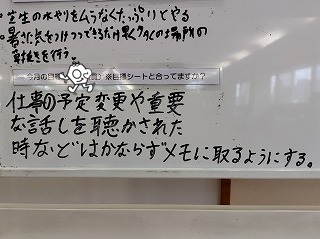 ・芝生の水やりをムラなくたっぷりとやる
・暑さに気をつけつつできるだけ早く夕夕の場所の
草抜きを行う。
今月の目標 ※目標シートと合ってますか？
仕事の予定変更や重要
な話しを聴かされた
時などはかならずメモに取るようにする。